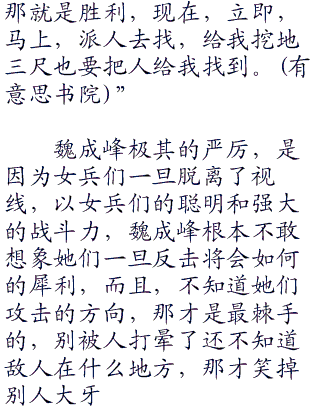 那就是胜利，现在，立即，
马上，派人去找，给我挖地
三尺也要把人给我找到。(有
意思书院)”
魏成峰极其的严厉，是
因为女兵们一旦脱离了视
线，以女兵们的聪明和强大
的战斗力，魏成峰根本不敢
想象她们一旦反击将会如何
的犀利，而且，不知道她们
攻击的方向，那才是最棘手
的，别被人打晕了还不知道
敌人在什么地方，那才笑掉
别人大牙